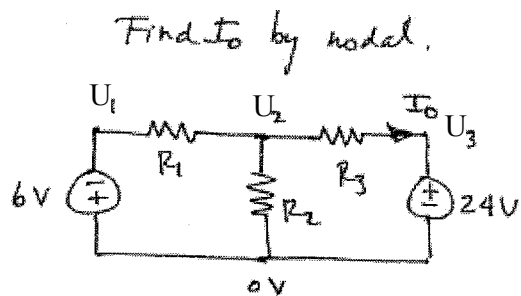 Find I₀ by nodal.
U₁ U₂ I₀ U₃
R₁ R₃
6V - + R₂ + - 24V
0V